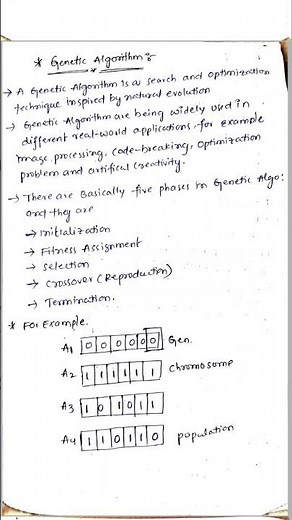 * Genetic Algorithm :-
→ A Genetic Algorithm is a search and optimization
technique inspired by natural evolution
→ Genetic Algorithm are being widely used in
different real-world applications, for example
Image processing, code-breaking, optimization
problem and artifical creativity.
→ There are Basically five phases in Genetic Algo:
and they are
→ initialization
→ Fitness Assignment
→ selection
→ crossover (Reproduction)
→ Termination.
* For Example.
A1 0 0 0 0 0 0 Gen.
A2 1 1 1 1 1 1 chromosome
A3 1 0 1 0 1 1
A4 1 1 0 1 1 0 population